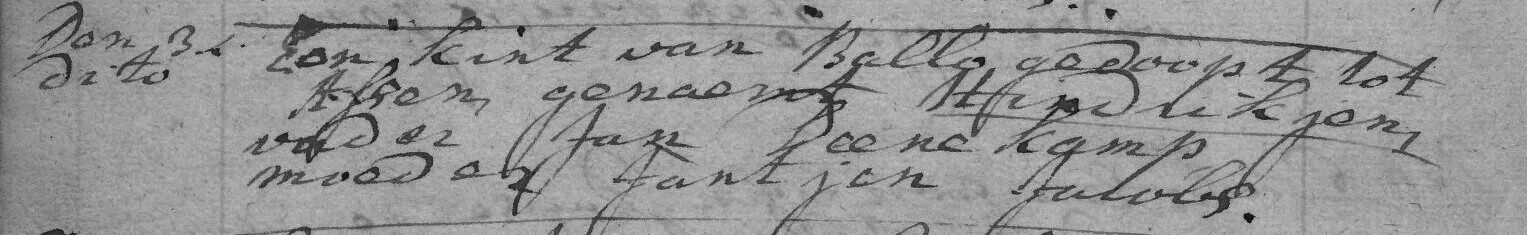 Den 31.
dito
Een kint van Ballo gedoopt tot
Assen, genaemt Hindrikjen,
vader Jan Hoenekamp
moeder Jantjen Jacobs.